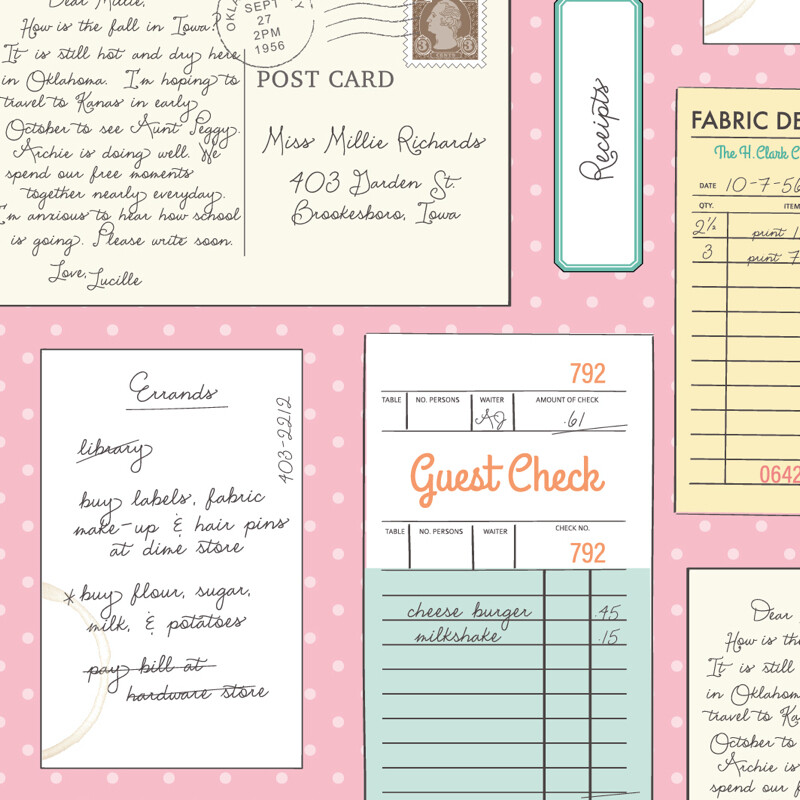 Dear Millie,
How is the fall in Iowa?
It is still hot and dry here
in Oklahoma. I'm hoping to
travel to Kanas in early
October to see Aunt Peggy.
Archie is doing well. We
spend our free moments
together nearly everyday.
I'm anxious to hear how school
is going. Please write soon.
Love, Lucille
SEPT
27
2PM
1956
3 3
POST CARD
Miss Millie Richards
403 Garden St.
Brookesboro, Iowa
Receipts
FABRIC DE
The H. Clark C
DATE 10-7-56
QTY. ITEM
2½ print 1
3 print 7
0642
Errands
403-2212
library
buy labels, fabric
make-up & hair pins
at dime store
*buy flour, sugar,
milk, & potatoes
pay bill at
hardware store
792
TABLE NO. PERSONS WAITER AMOUNT OF CHECK
AJ .61
Guest Check
TABLE NO. PERSONS WAITER CHECK NO.
792
cheese burger .45
milkshake .15
Dear
How is the
It is still
in Oklahoma
travel to Ka
October to
Archie is
spend our f